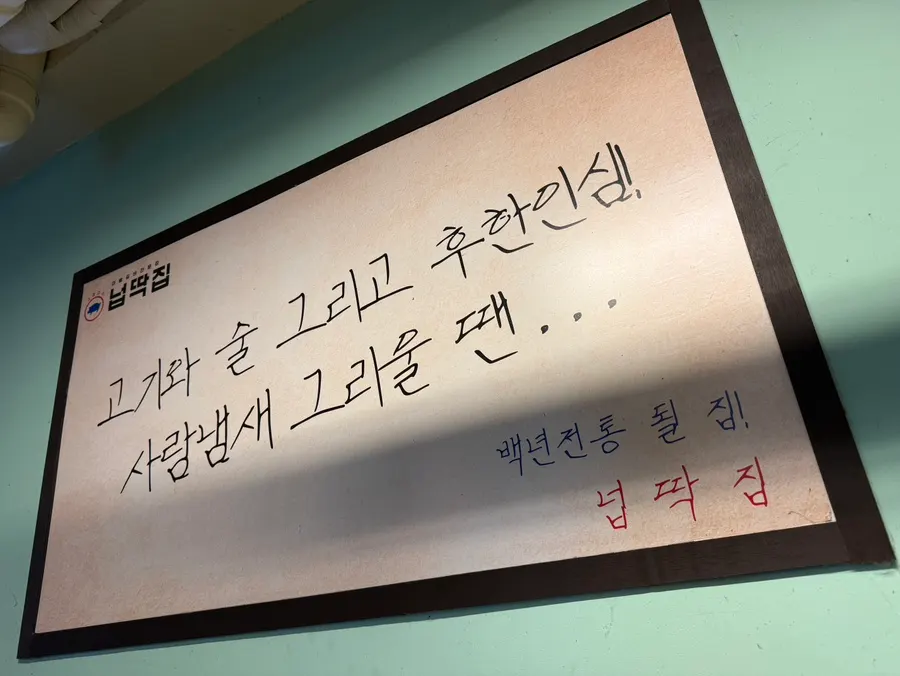 넙딱집
고기와 술 그리고 후한인심!
사람냄새 그리울 땐...
백년전통 될 집!
넙 딱 집